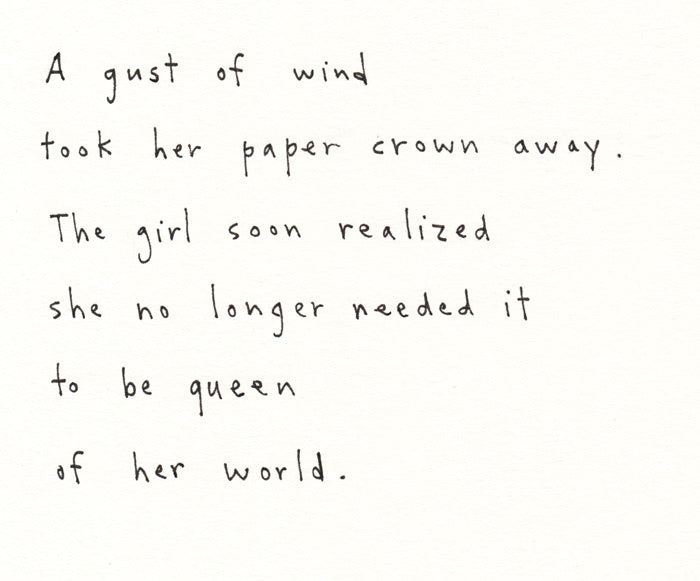 A gust of wind
took her paper crown away.
The girl soon realized
she no longer needed it
to be queen
of her world.